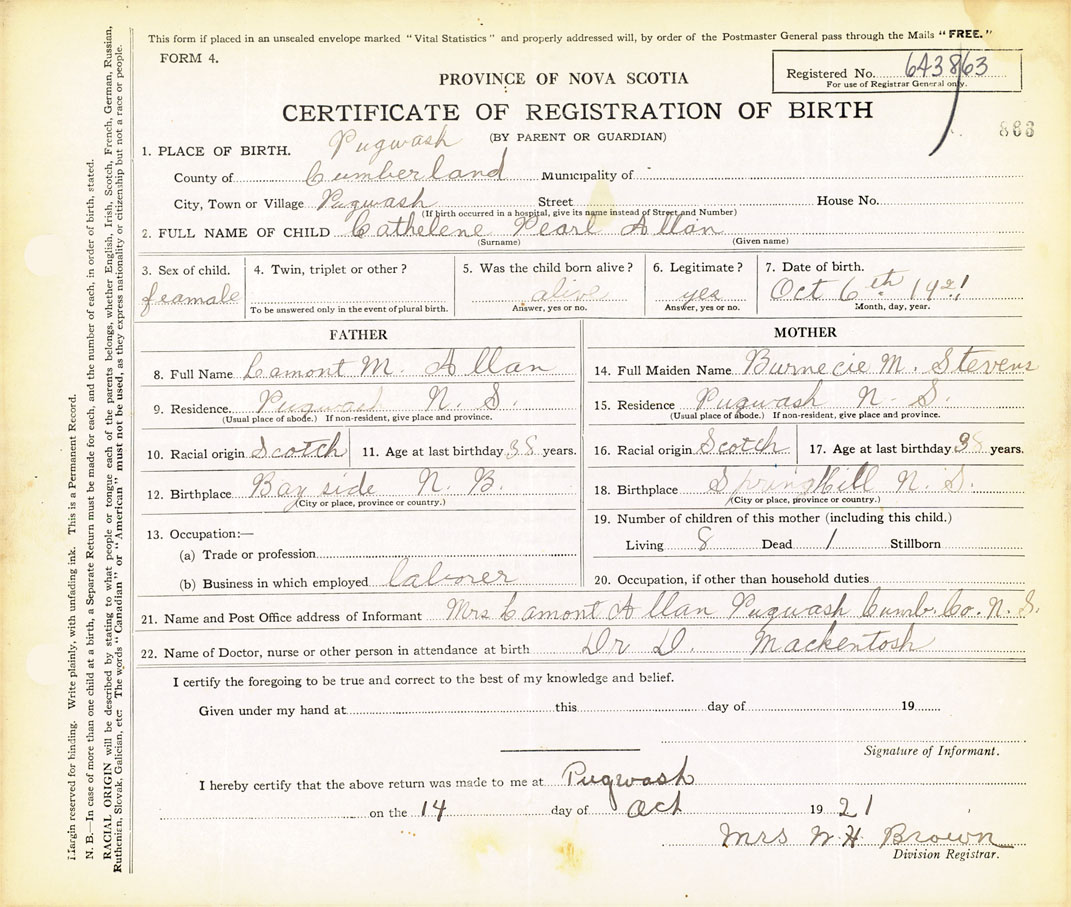 This form if placed in an unsealed envelope marked "Vital Statistics" and properly addressed will, by order of the Postmaster General pass through the Mails "FREE."
FORM 4.
Registered No. 643863
For use of Registrar General only.
PROVINCE OF NOVA SCOTIA
CERTIFICATE OF REGISTRATION OF BIRTH
(BY PARENT OR GUARDIAN)
863
1. PLACE OF BIRTH. Pugwash
County of Cumberland Municipality of
City, Town or Village Pugwash Street House No.
(If birth occurred in a hospital, give its name instead of Street and Number)
2. FULL NAME OF CHILD Cathelene Pearl Allan
(Surname) (Given name)
3. Sex of child. 4. Twin, triplet or other? 5. Was the child born alive? 6. Legitimate? 7. Date of birth.
feamale alive yes Oct 6th 1921
To be answered only in the event of plural birth. Answer, yes or no. Answer, yes or no. Month, day, year.
FATHER
8. Full Name Lamont M. Allan
9. Residence Pugwash N. S
(Usual place of abode.) If non-resident, give place and province.
10. Racial origin Scotch 11. Age at last birthday 38 years.
12. Birthplace Bay side N. B.
(City or place, province or country.)
13. Occupation:—
(a) Trade or profession
(b) Business in which employed laborer
MOTHER
14. Full Maiden Name Burnecie M. Stevens
15. Residence Pugwash N. S.
(Usual place of abode.) If non-resident, give place and province.
16. Racial origin Scotch 17. Age at last birthday 38 years.
18. Birthplace SpringHill N. S.
(City or place, province or country.)
19. Number of children of this mother (including this child.)
Living 8 Dead 1 Stillborn
20. Occupation, if other than household duties
21. Name and Post Office address of Informant Mrs Lamont Allan Pugwash Cumb. Co. N. S.
22. Name of Doctor, nurse or other person in attendance at birth Dr D. Mackentosh
I certify the foregoing to be true and correct to the best of my knowledge and belief.
Given under my hand at this day of 19
Signature of Informant.
I hereby certify that the above return was made to me at Pugwash
on the 14 day of Oct 1921
Mrs W H Brown
Division Registrar.
Margin reserved for binding. Write plainly, with unfading ink. This is a Permanent Record.
N. B.—In case of more than one child at a birth, a Separate Return must be made for each, and the number of each, in order of birth, stated.
RACIAL ORIGIN will be described by stating to what people or tongue each of the parents belongs, whether English, Irish, Scotch, French, German, Russian,
Ruthenian, Slovak, Galician, etc: The words "Canadian" or "American" must not be used, as they express nationality or citizenship but not a race or people.